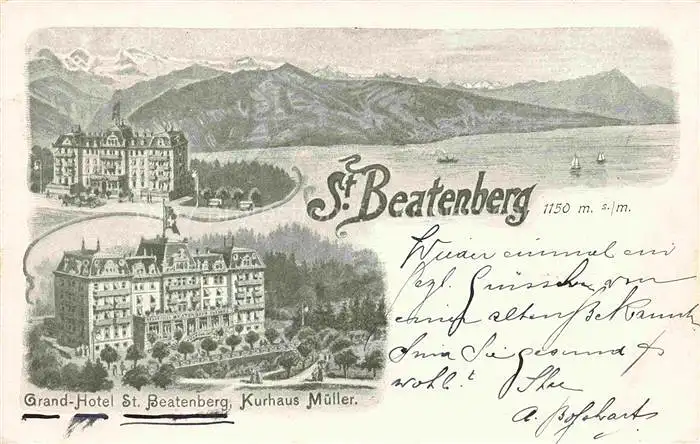 St. Beatenberg 1150 m. s./m.
Wieder einmal ein
hzgl. Grüsschen von
einer alten Bekannt.
Sind Sie gesund &
wohl? Ihre
A. Bosshart
Grand-Hotel St. Beatenberg, Kurhaus Müller.